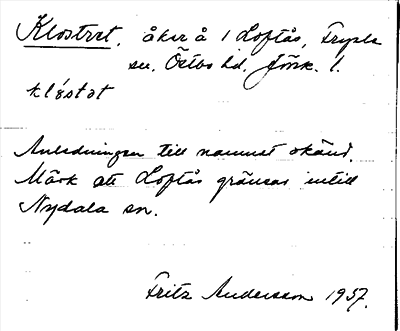 Klostret, åker å 1 Loftås, Fryele
sn. Östbo hd. Jönk. l.
klǿstət
Anledningen till namnet okänd.
Märk att Loftås gränsar intill
Nydala sn.
Fritz Andersson 1957.